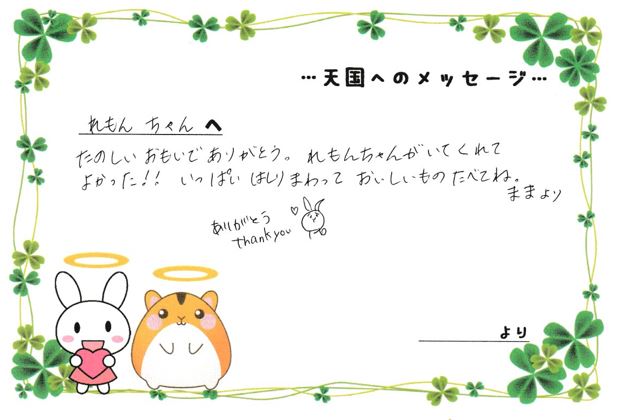 …天国へのメッセージ…
れもん ちゃん へ
たのしい おもいで ありがとう。 れもんちゃんが いて くれて
よかった!! いっぱい はしりまわって おいしいもの たべてね。
ままより
ありがとう
thank you
より